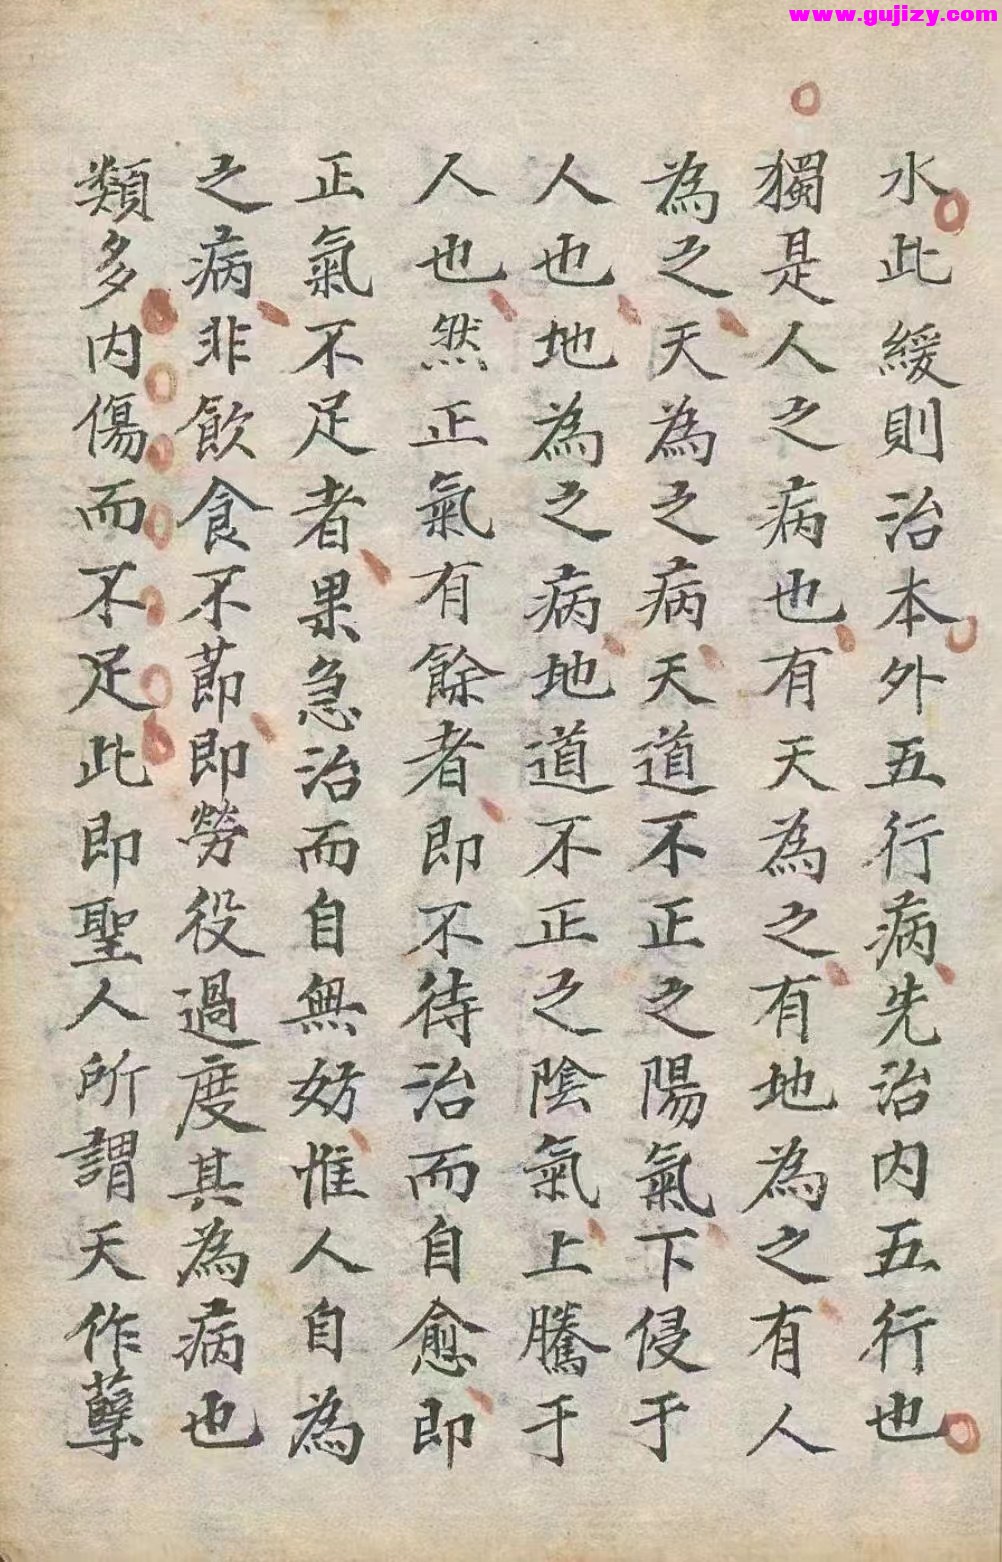 www.gujizy.com
水此緩則治本外五行病先治内五行也
獨是人之病也有天為之有地為之有人
為之天為之病天道不正之陽氣下侵于
人也地為之病地道不正之陰氣上騰于
人也然正氣有餘者即不待治而自愈即
正氣不足者果急治而自無妨惟人自為
之病非飲食不莭即勞役過度其為病也
類多内傷而不足此即聖人所謂天作孽